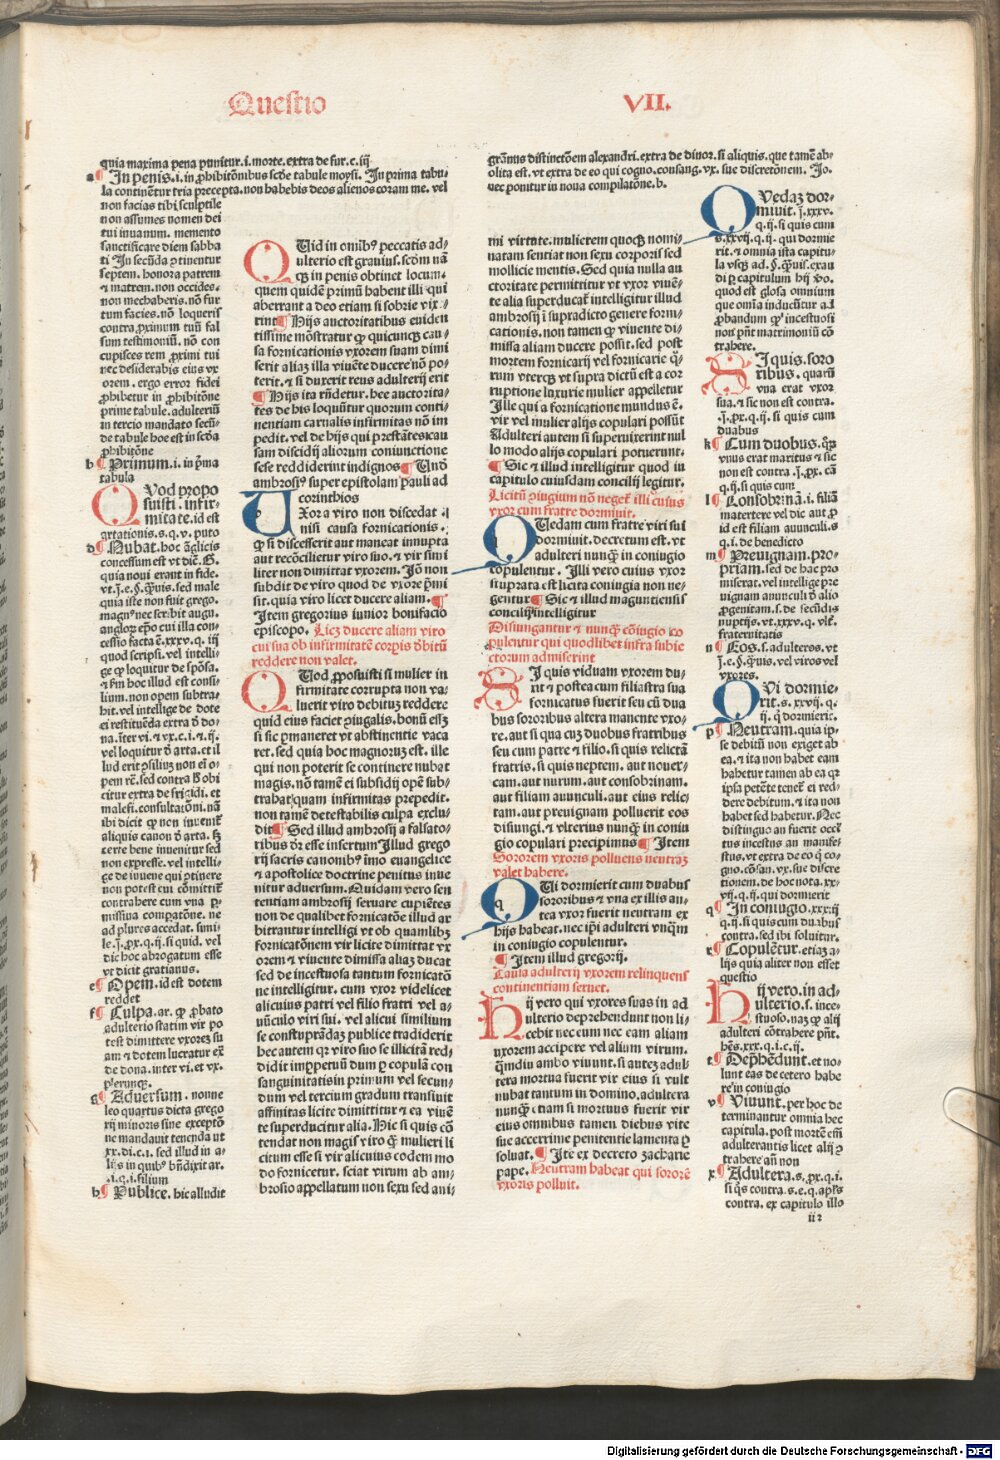 Questio VII.
quia maxima pena punitur.i.morte.extra de fur.c.iij
a In penis.i.in ꝓhibitōnibus scd̄e tabule moysi. In prima tabu
la continētur tria precepta.non habebis deos alienos coram me. vel
non facias tibi sculptile
non assumes nomen dei
tui in vanum. memento
sanctificare diem sabba
ti In secūda ꝯtinentur
septem. honora patrem
⁊ matrem. non occides.
non mechaberis. nō fur
tum facies. nō loqueris
contra ꝓximum tuū fal
sum testimoniū. nō con
cupisces rem ꝓximi tui
nec desiderabis eius vx
orem. ergo error fidei
ꝓhibetur in ꝓhibitōne
prime tabule. adulteriū
in tercio mandato secū-
de tabule hoc est in scd̄a
ꝓhibitōne
b Primum.i.in p̄ma
tabula
QVod propo
suisti. infir-
mitate. id est
d Nubat. hoc āglicis
concessum est vt dic̄. G.
quia noui erant in fide.
quia iste non fuit grego.
cessio facta ē.xxxv.q.iij
quod scripsi. vel intelli-
ge ꝙ loquitur de spōsa.
⁊ s̄m hoc illud est consi-
lium. non opem subtra-
hit. vel intellige de dote
vel loquitur d̄ arta. et il
citur extra de frigidi. et
ibi dicit ꝙ non inueniē
certe bene inuenitur sed
non expresse. vel intelli-
ge de iuuene qui ꝯtinere
non potest cui cōmittit̄
contrahere cum vna ꝑ-
missiua compatōne. ne
ad plures accedat. simi-
le.j.ꝓx.q.ij.si quid. vel
dic hoc abrogatum esse
vt dicit gratianus.
e Opem. id est dotem
reddet
f Culpa. ar. ꝙ ꝓbato
adulterio statim vir po
test dimittere vxorez su
am ⁊ dotem lucratur ex̄
de dona.inter vi.et vx.
plerunqꝫ.
g Aduersum. nonne
leo quartus dicta grego
rij minoris sine exceptō
ne mandauit tenenda ut
xx.di.c.i. sed illud in a-
lijs in quibꝰ
.i.q.i.filium
h Publice. hic alludit
QUid in omibꝰ peccatis ad-
ulterio est grauius. scd̄m nā
qꝫ in penis obtinet locum.
quem quidē primū habent illi qui
aberrant a deo etiam si sobrie vix-
rint Hijs auctoritatibus euiden
tissime mōstratur ꝙ quicunqꝫ cau-
sa fornicationis vxorem suam dimi
serit aliaʒ illa viuēte ducere nō po-
terit.⁊ si duxerit reus adulterij erit
Hijs ita rn̄detur. hec auctorita-
tes de his loquūtur quorum conti-
nentiam carnalis infirmitas nō im
pedit. vel de hijs qui prestātes cau
sam discidij aliorum coniunctione
sese reddiderint indignos Und̄
ambrosiꝰ super epistolam pauli ad
corinthios
UXor a viro non discedat
nisi causa fornicationis.
ꝙ si discesserit aut maneat innupta
aut recōcilietur viro suo.⁊ vir simi
liter non dimittat vxorem. Iō non
subdit de viro quod de vxore p̄mi
sit. quia viro licet ducere aliam.
Item gregorius iunior bonifacio
episcopo. Liceʒ ducere aliam viro
cui sua ob infirmitatē corpis d̄bitū
reddere non valet.
QUod ꝓposuisti si mulier in
firmitate corrupta non va-
luerit viro debituʒ reddere
quid eius faciet ꝯiugalis. bonū eēʒ
si sic ꝑmaneret vt abstinentie vaca
ret. sed quia hoc magnoruʒ est. ille
qui non poterit se continere nubat
magis. nō tamē ei subsidij opē sub-
trahat quam infirmitas prepedit.
non tamē detestabilis culpa exclu-
dit Sed illud ambrosij a falsato-
ribus d̄r esse insertum Illud grego
rij sacris canonibꝰ īmo euangelice
⁊ apostolice doctrine penitus inue
nitur aduersum. Quidam vero sen
tentiam ambrosij seruare cupiētes
non de qualibet fornicatōe illud ar
bitrantur intelligi vt ob quamlibʒ
fornicatōnem vir licite dimittat vx
orem ⁊ viuente dimissa aliaʒ ducat
sed de incestuosa tantum fornicatō
ne intelligitur. cum vxor videlicet
alicuius patri vel filio fratri vel a-
uūculo viri sui. vel alicui similium
se constuprādaʒ publice tradiderit
hec autem qꝛ viro suo se illicitā red-
didit imꝑpetuū dum ꝑ copulā con
sanguinitatis in primum vel secun-
dum vel tercium gradum transiuit
affinitas licite dimittitur ⁊ ea viuē
te superducitur alia. Hic si quis cō
tendat non magis viro ꝙ mulieri li
citum esse si vir alicuius eodem mo
do fornicetur. sciat virum ab am-
brosio appellatum non sexu sed ani-
gram̄us distinctōem alexandri. extra de diuor. si aliquis. que tamē ab-
olita est. vt extra de eo qui cogno. consang. vx. sue discretōnem. Io.
nec ponitur in noua compilatōne.b.
mi virtute. mulierem quoqꝫ nomi-
natam sentiat non sexu corporis sed
mollicie mentis. Sed quia nulla au
ctoritate permittitur vt vxor viuē-
te alia superducat̄ intelligitur illud
ambrosij ī supradicto genere forni-
cationis. non tamen ꝙ viuente di-
missa aliam ducere possit. sed post
mortem fornicarij vel fornicarie q̄-
rum vterqꝫ vt supra dictū est a cor
ruptione luxurie mulier appelletur
Ille qui a fornicatione mundus ē.
vir vel mulier alijs copulari possūt
Adulteri autem si superuixerint nul
lo modo alijs copulari potuerunt.
Sic ⁊ illud intelligitur quod in
capitulo cuiusdam concilij legitur.
Licitū ꝯiugium nō neget̄ illi cuius
vxor cum fratre dormiuit.
QUedam cum fratre viri sui
dormiuit. decretum est. vt
adulteri nunqꝫ in coniugio
copulentur. Illi vero cuius vxor
stuprata est licita coniugia non ne-
gentur Sic ⁊ illud maguntiensis
concilij intelligitur
Disiungantur ⁊ nunqꝫ cōiugio co
pulentur qui quodlibet infra subie
ctorum admiserint
SI quis viduam vxorem du-
xit ⁊ postea cum filiastra sua
fornicatus fuerit seu cū dua
bus sororibus altera manente vxo-
re. aut si qua cuʒ duobus fratribus
seu cum patre ⁊ filio. si quis relictā
fratris. si quis neptem. aut nouer-
cam. aut nurum. aut consobrinam.
aut filiam auunculi. aut eius relic-
tam. aut preuignam polluerit eos
disiungi. ⁊ vlterius nunqꝫ in coniu
gio copulari precipimus Item
Sororem vxoris polluens neutraʒ
valet habere.
QUi dormierit cum duabus
sororibus ⁊ vna ex illis an-
tea vxor fuerit neutram ex
hijs habeat. nec ip̄i adulteri vnq̄m
in coniugio copulentur.
Item illud gregorij.
Causa adulterij vxorem relinquens
continentiam seruet.
HIj vero qui vxores suas in ad
ulterio deprehendunt non li-
cebit nec eum nec eam aliam
uxorem accipere vel alium virum.
q̄mdiu ambo viuunt. si auteʒ adul-
tera mortua fuerit vir eius si vult
nubat tantum in domino. adultera
nunqꝫ. etiam si mortuus fuerit vir
eius omnibus tamen diebus vite
sue accerrime penitentie lamenta ꝑ
soluat. Ite ex decreto zacharie
pape. Neutram habeat qui sororē
vxoris polluit.
QVedaʒ dor-
miuit. j.xxxv.
q.ij. si quis cum
s.xxvij.q.ij. qui dormie
rit.⁊ omnia ista capitu-
la vsqꝫ ad.§.ꝙuis.exau
di ꝑ capitulum hij vo.
quod est glosa omnium
que omīa inducūtur a.I
ꝓbandum ꝙ incestuosi
non pn̄t matrimoniū cō
trahere.
SI quis. soro
ribus. quarū
vna erat vxor
sua.⁊ sic non est contra.
.j.ꝓx.q.ij. si quis cum
duabus
k Cum duobus. q̄ꝫ
vnus erat maritus ⁊ sic
non est contra .j.ꝓx. cā
q.ij. si quis cum
l Consobrinā.i. filiā
matertere vel dic aut ꝓ
id est filiam auunculi.s
q.i.de benedicto
m Preuignam. pro-
priam. sed de hac pro
miserat. vel intellige pre
uignam auunculi d̄ alio
ꝓgenitam.s.de secūdis
nuptijs.vt.xxxv.q.vlt̄.
fraternitatis
n Eos.s.adulteros.vt
.j.e.§.ꝙuis. vel viros vel
vxores.
QVi dormie-
rit.s.xxvij.q.
ij. q̄ dormierit.
p Neutram. quia ip̄-
se debitū non exiget ab
ea.⁊ ita non habet eam
habetur tamen ab ea qꝛ
ipsa petēte tenet̄ ei red-
dere debitum.⁊ ita non
habet sed habetur. Nec
distinguo an fuerit occl̄
tus incestus an manife-
stus. vt extra de eo q̄ co
gno.cōsan.vx. sue discre
tionem. de hoc nota.xx-
vij.q.ij.qui dormierit
q In coniugio.xxxij
q.ij. si quis cum duabus
contra. sed ibi soluitur.
r Copulētur. etiaʒ a-
lijs quia aliter non esset
questio
HIj vero. in ad
ulterio.s. ince-
stuoso. naʒ ꝙ alij
adulteri cōtrahere pn̄t.
hēs.xxx.q.i.c.ij.
t Deph̄edunt. et no-
lunt eas de cetero habe
re in coniugio
v Viuunt. per hoc de
terminantur omnia hec
capitula. post mortē em̄
adulterantis licet alij ꝯ
trahere aū non
x Adultera.s.ꝓx.q.i.
si q̄s contra.s.e.q.aplꝰs
contra. ex capitulo illo
ii 2
Digitalisierung gefördert durch die Deutsche Forschungsgemeinschaft - DFG